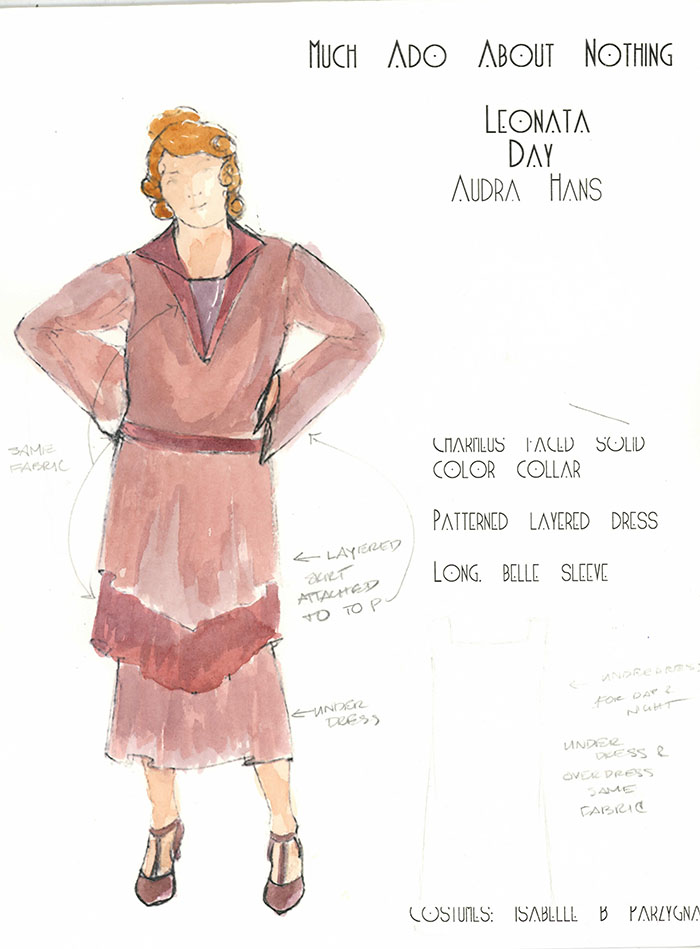 Much Ado About Nothing
Leonata
Day
Audra Hans
SAME
FABRIC
Charmeus Faced Solid
Color Collar
Patterned Layered Dress
Long. Belle Sleeve
← LAYERED
SKIRT
ATTACHED
TO TOP
← UNDER
DRESS
← UNDERDRESS
FOR DAY &
NIGHT
UNDER
DRESS &
OVERDRESS
SAME
FABRIC
Costumes: Isabelle B Parzygna